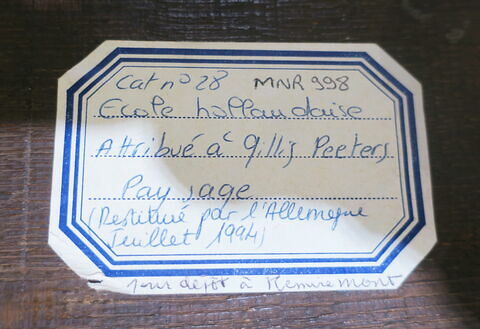 Cat n° 28 MNR 998
Ecole hollandaise
Attribué à Gillis Peeters
Paysage
(Restitué par l'Allemagne
Juillet 1994)
pour dépôt à Remiremont